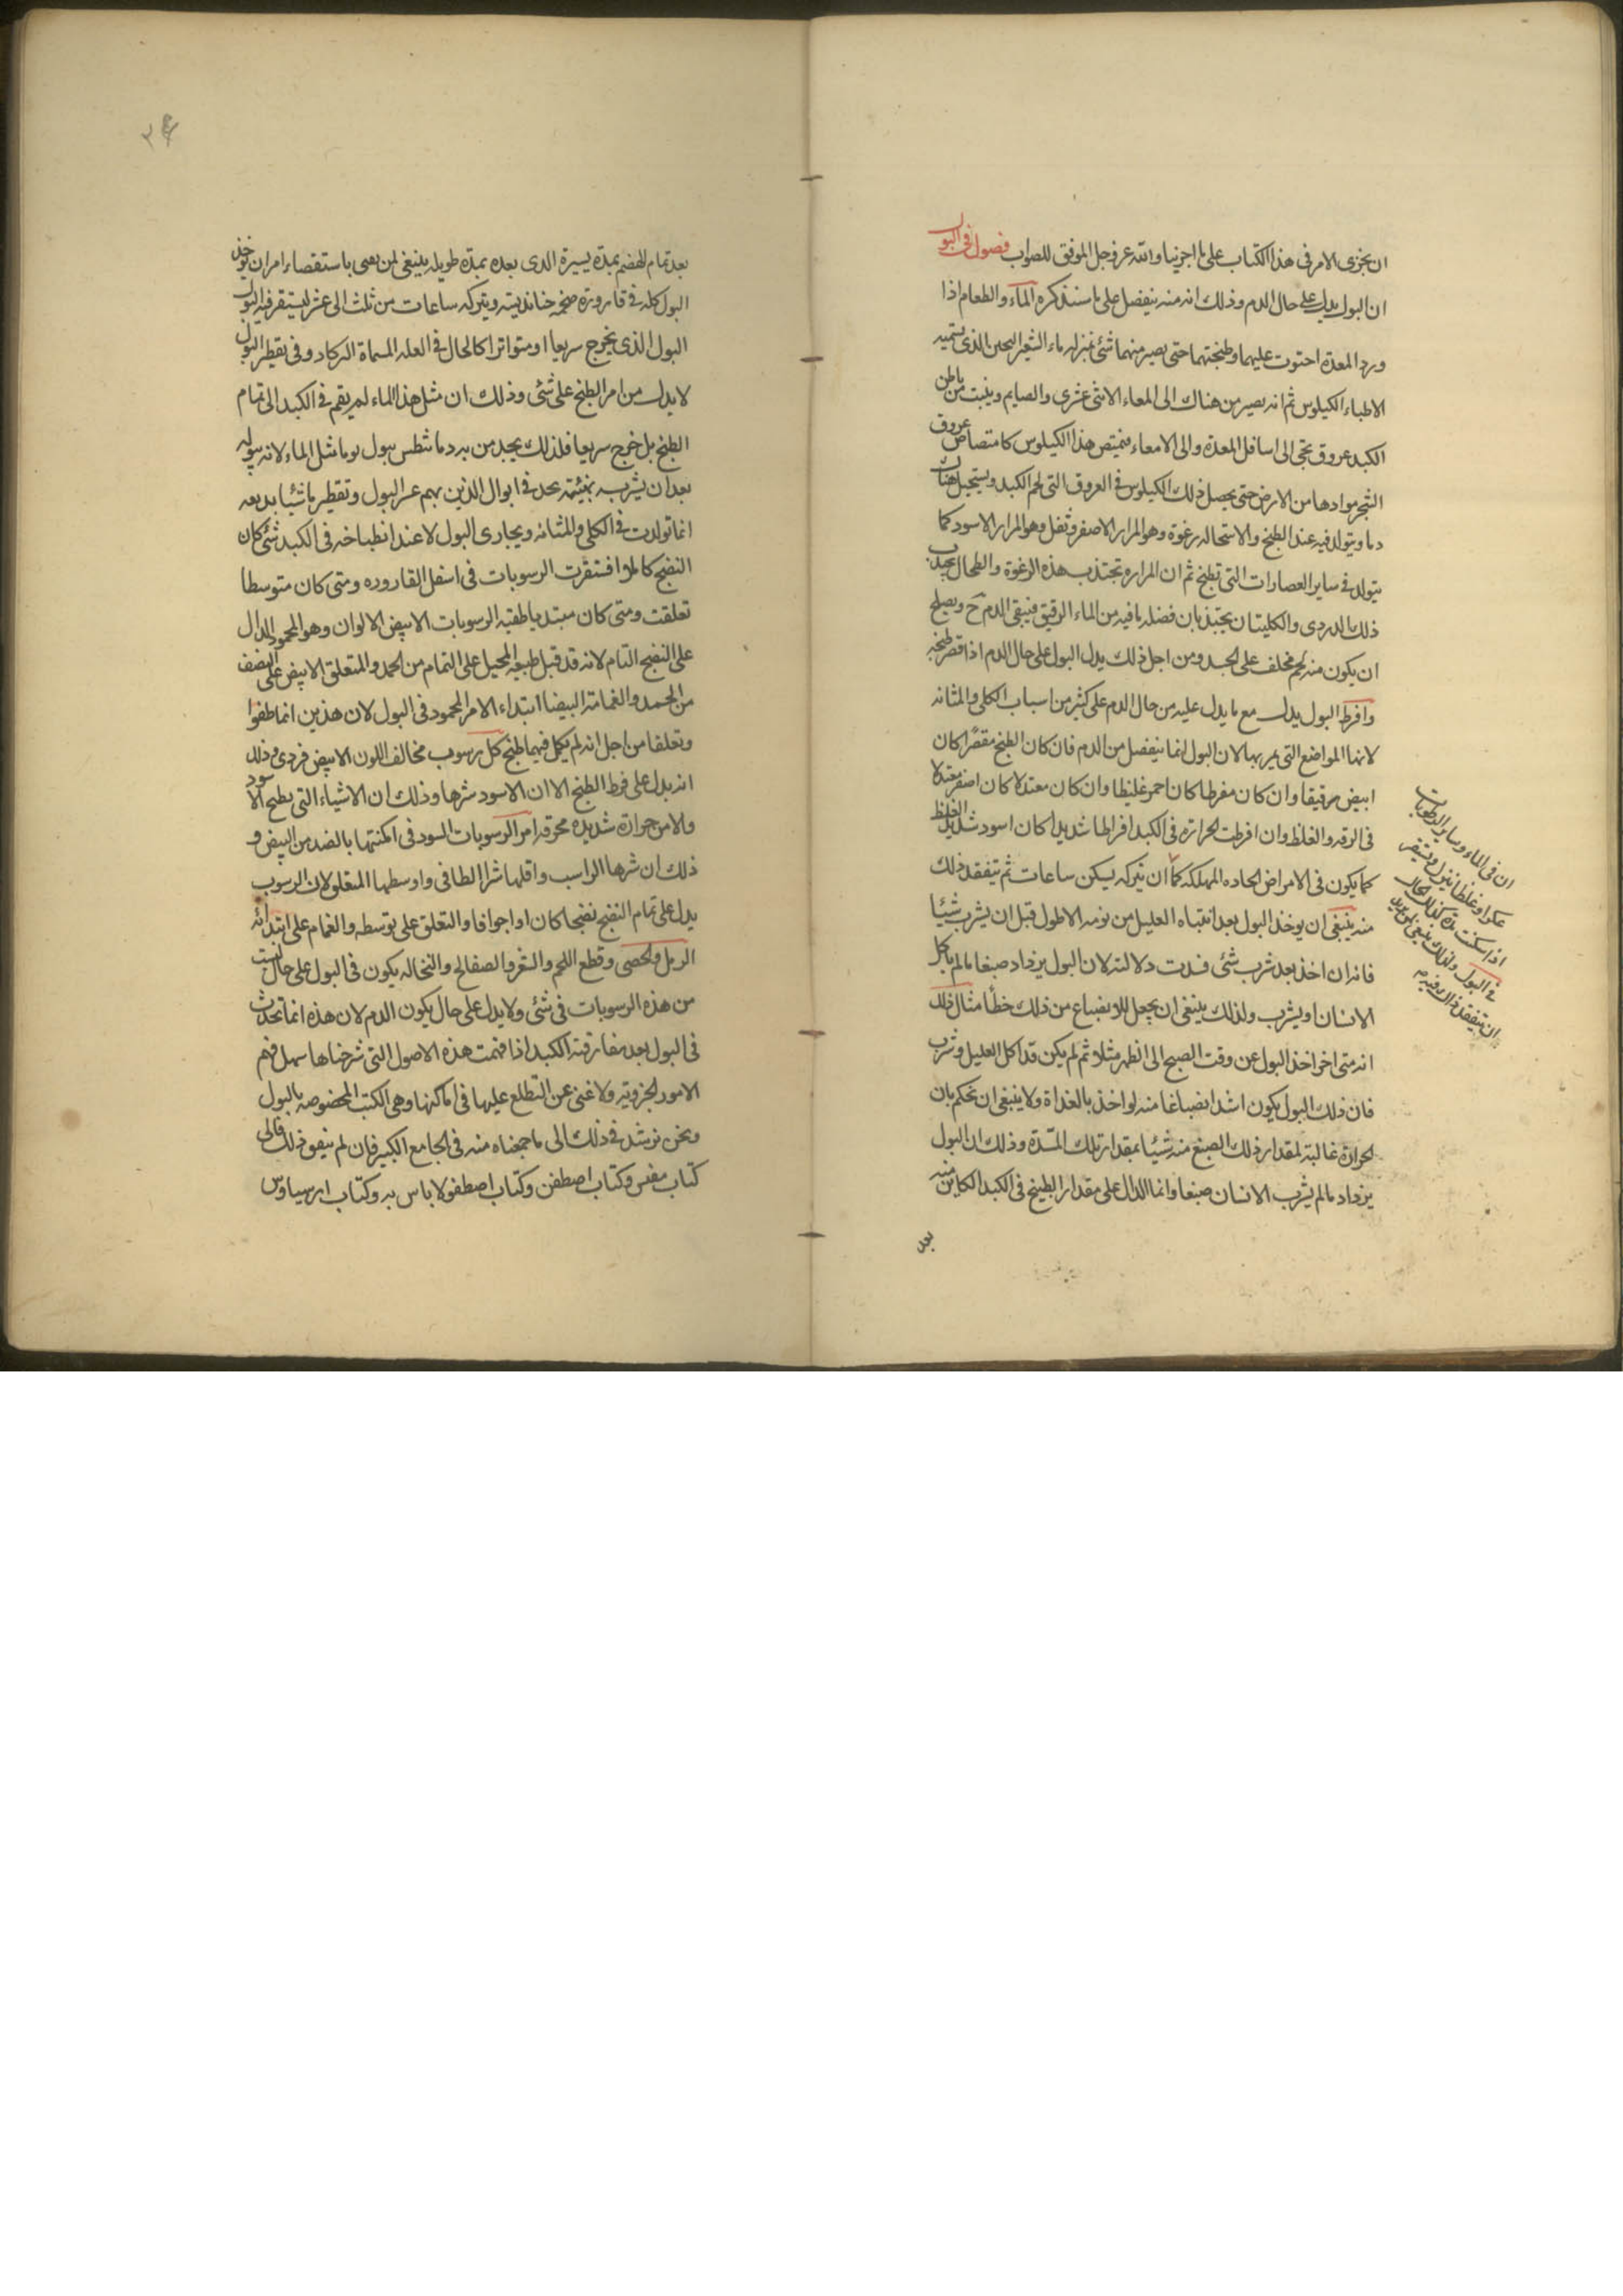 ان نجزى الامر فى هذا الكتاب على ما اجزينا والله عز وجل الموفق للصواب فصول فى البول
ان البول يدل على حال الدم وذلك انه منه ينفصل على ما سنذكره الماء والطعام اذا
ورد المعدة احتوت عليهما وطبختهما حتى يصير منهما شئ بمنزله ماء الشعير الثخين الذى يسميه
الاطباء الكيلوس ثم انه يصير من هناك الى المعاء الاثنى عشرى والصايم وينبت من باطن
الكبد عروق تجئ الى اسافل المعدة والى الامعاء فيمتص هذا الكيلوس كامتصاص عروق
الشجر موادها من الارض حتى يحصل ذلك الكيلوس فى العروق التى لحم الكبد ويستحيل هناك
دما ويتولد فيه عند الطبخ والاستحاله رغوة وهو المرار الاصفر وثفل وهو المرار الاسود كما
يتولد فى ساير العصارات التى تطبخ ثم ان المراره تجتذب هذه الرغوة والطحال يجذب
ذلك الدردى والكليتان يجتذبان فضله مافيه من الماء الرقيق فيبقى الدم ح ويصلح
ان يكون منه لحم مخلف على الجسد ومن اجل ذلك يدل البول على حال الدم اذا قصر طبخه
وافرط البول يدل مع ما يدل عليه من حال الدم على كثير من اسباب الكلى والمثانه
لانها المواضع التى يمر بها لان البول انما ينفصل من الدم فان كان الطبخ مقصرا كان
ابيض رقيقا وان كان مفرطا كان احمر غليظا وان كان معتدلا كان اصفر معتدلا
فى الرقه والغلظ وان افرطت الحرارة فى الكبد افراطا شديدا كان اسود شديد الغلظ
كما يكون فى الامراض الحاده المهلكه كما ان تتركه يسكن ساعات ثم تتفقد ذلك
منه ينبغى ان يوخذ البول بعد انتباه العليل من نومه الاطول قبل ان يشرب شيئا
فانه ان اخذ بعد شرب شئ فسدت دلالته لان البول يزداد صبغا مالم ياكل
الانسان او يشرب ولذلك ينبغى ان يجعل للانصباغ من ذلك خطأ مثال ذلك
انه متى اخر اخذ البول عن وقت الصبح الى الظهر مثلا ثم لم يكن قد اكل العليل وشرب
فان ذلك البول يكون اشد انصباغا منه لو اخذ بالغداة ولا ينبغى ان نحكم بان
الحرارة غالبة لمقدار ذلك الصبغ منه شيئا بمقدار تلك المدة وذلك ان البول
يزداد مالم يشرب الانسان صبغا وانما الدال على مقدار الطبخ فى الكبد الكاين منه
بعد
ان فى الماء وساير الرطوبات
عكرا وغلظا ينزل ويستقر
اذا سكنت مدة كذلك الحال
فى البول ولذلك ينبغى
ان تتفقد ذلك فيه
بعد تمام الهضم بمدة يسيرة الذى بعده بمدة طويله ينبغى لمن يعنى باستقصاء امر ان يوخذ
البول كله فى قارورة ضخمه ويتركه ساعات من ثلث الى عشر ليستقر فيه
البول الذى يخرج سريعا او متواترا كالحال فى العله المسماة الدركاد وفى تقطير البول
لا يدل من امر الطبخ على شئ وذلك ان مثل هذا الماء لم يقم فى الكبد الى تمام
الطبخ بل خرج سريعا فلذلك يجد من به يبول بولا مثل الماء لانه يبوله
بعد ان يشربه فى ابوال الذين بهم عسر البول وتقطير
انما تولدت فى الكلى والمثانه ومجارى البول لا عند انطباخه فى الكبد شئ كان
النضج كاملا استقرت الرسوبات فى اسفل القاروره ومتى كان متوسطا
تعلقت ومتى كان مبتديا طفيه الرسوبات الابيض الالوان وهو المحمود الدال
على النضج التام لانه قد قبل طبعه المحيل على التمام من الحمد والمتعلق الابيض على النصف
من الحمد والغمامة البيضا ابتداء الامر المحمود فى البول لان هذين انما طفوا
وتعلقا من اجل انه لم يكمل فيهما طبخ كل رسوب مخالف اللون الابيض فردى وذلك
انه يدل على فرط الطبخ الا ان الاسود شرها وذلك ان الاشياء التى يطبخ الاسود
والا من حرارة شديدة محرقه امر الرسوبات السود فى امكنتها بالضد من البيض و
ذلك ان شرها الراسب واقلها شرا الطافى واوسطها المتعلق لان الرسوب
يدل على تمام النضج نضجا كان او احراقا والتعلق على توسطه والغمام على ابتدائه
الرمل والحصى وقطع اللحم والشعر والصفايح والنخاله يكون فى البول على حال ليست
من هذه الرسوبات فى شئ ولا يدل على حال يكون الدم لان هذه انما تحدث
فى البول بعد مفارقته الكبد اذا فهمت هذه الاصول التى شرحناها سهل فهم
الامور الجزويه ولا غنى عن التطلع عليها فى اماكنها وهى الكتب المخصوصه بالبول
ونحن نرشد فى ذلك الى ما جمعناه منه فى الجامع الكبير فان لم يتفق ذلك فالى
كتاب مغنس وكتاب اصطفن وكتاب اصطفن لا باس به وكتاب